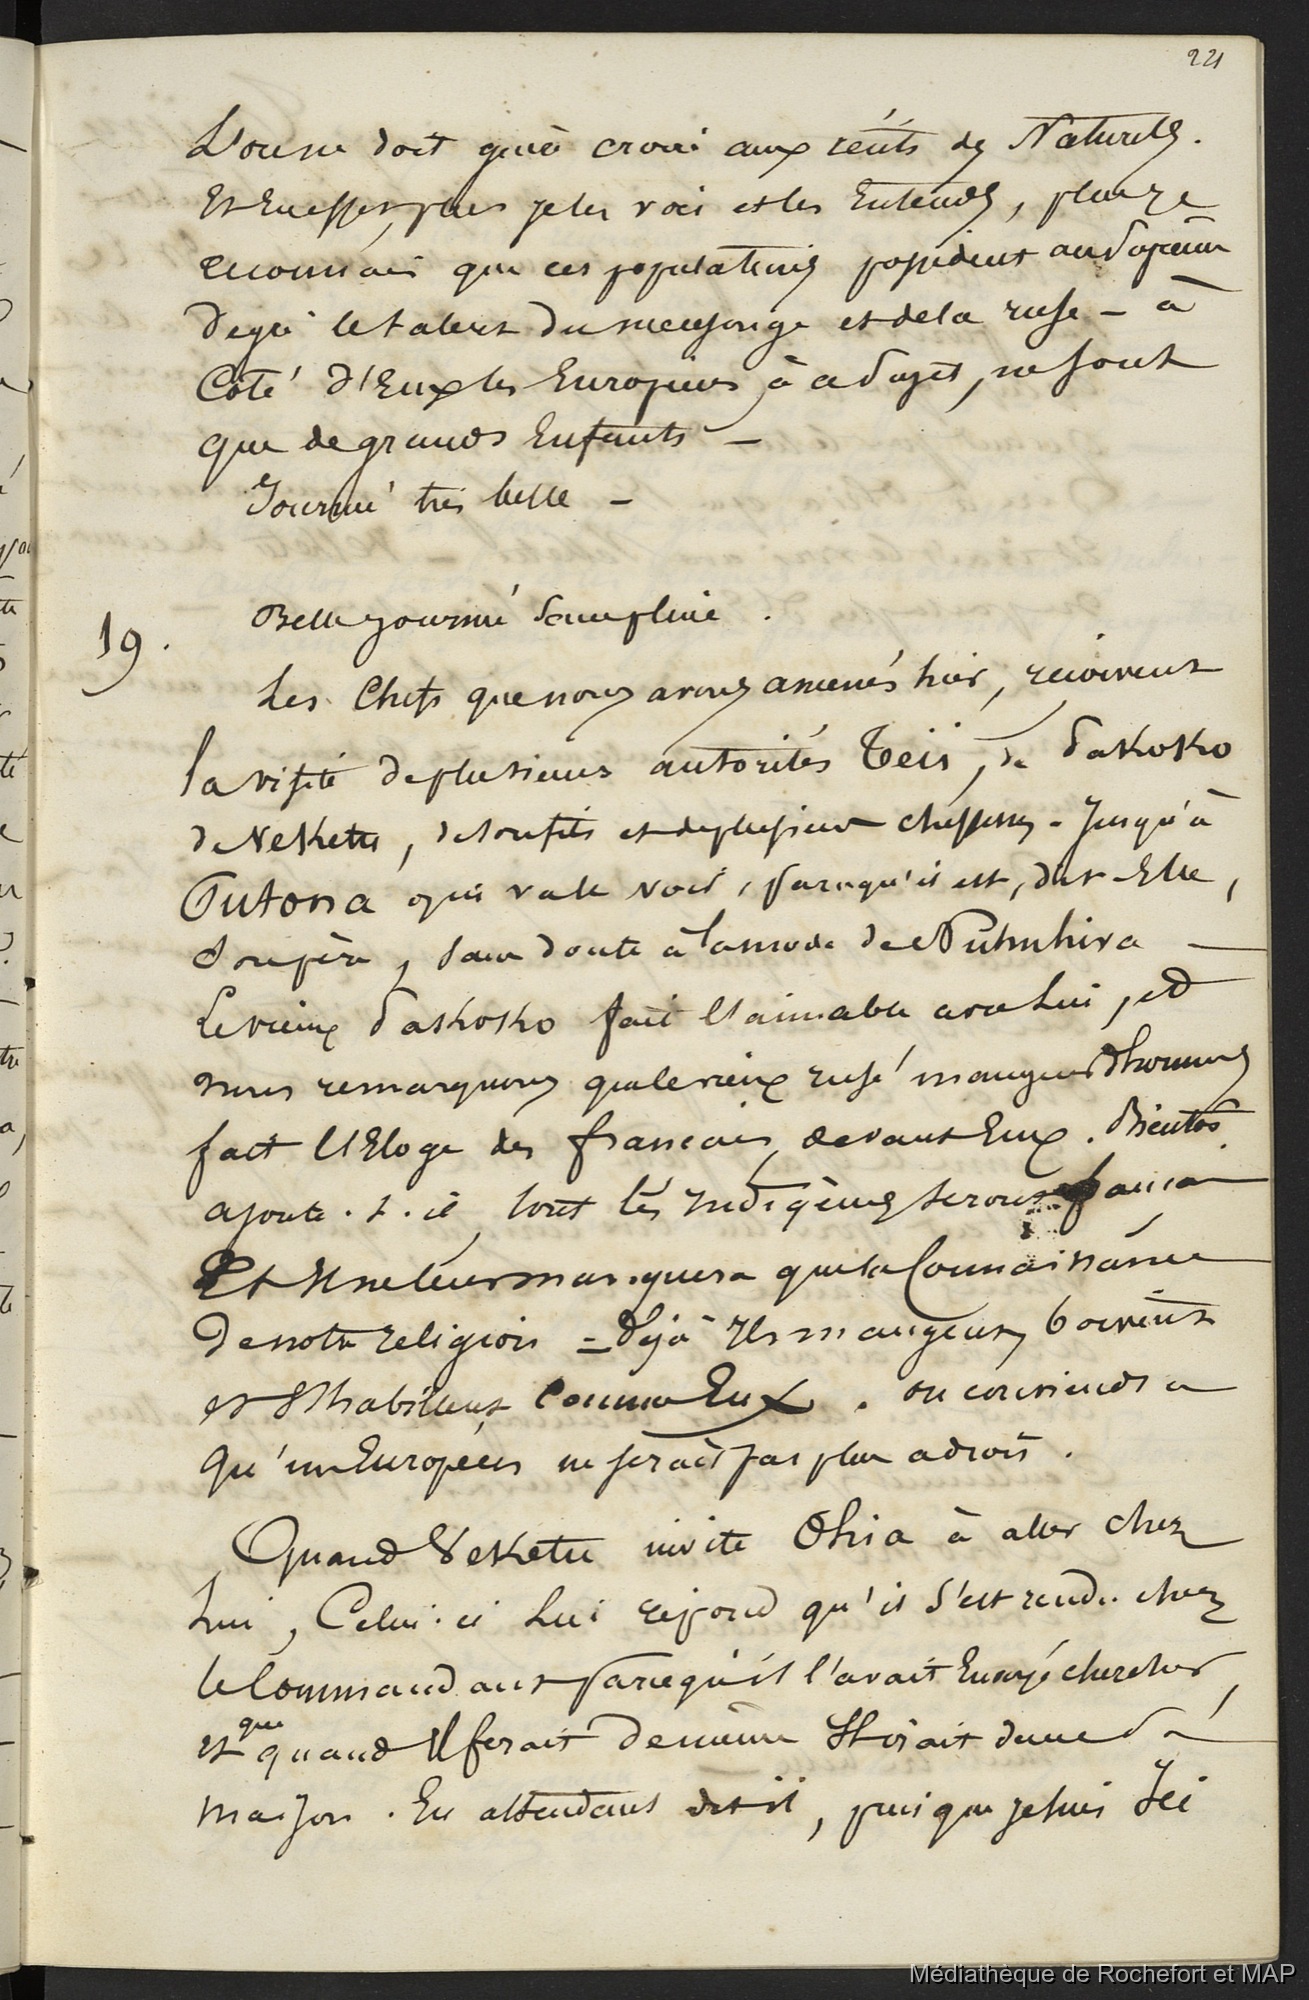 221
L'on ne doit guère croire aux récits des Naturels.
Et En effet, plus je les vois et les Entends, plus je
reconnais que ces populations possèdent au Suprême
degré le talent du mensonge et de la ruse – à
Côté d'Eux les Européens, à ce Sujet, ne sont
que de grands Enfants –
Journée très belle –
19. Belle journée Sans pluie.
Les Chefs que nous avons amenés hier, reçoivent
la visite de plusieurs autorités Teis, de Pakoko
de Veketu, de son fils et de plusieurs chefesses - Jusqu'à
Tutona qui va le voir, parcequ'il est, dit-Elle,
Son père, Sans doute à la mode de Nukuhiva –
Le vieux Pakoko fait l'aimable avec Lui, et
nous remarquons que le vieux rusé mangeur d'hommes
fait l'Eloge des français devant Eux. Bientôt
ajoute.t.il, tout les Indigènes seront français
Et Il ne leur manquera que la Connaissance
de notre religion – Déjà Ils mangent, boivent
et S'habillent Comme Eux. on conviendra
qu'un Européen ne serait pas plus adroit.
Quand Veketu invite Ohia à aller chez
Lui, Celui-ci Lui répond qu'il S'est rendu chez
le Commandant parcequ'il l'avait Envoyé chercher,
et que quand Il ferait de même Il irait dans Sa
maison. En attendant dit il, puisque je suis Ici
Médiathèque de Rochefort et MAP